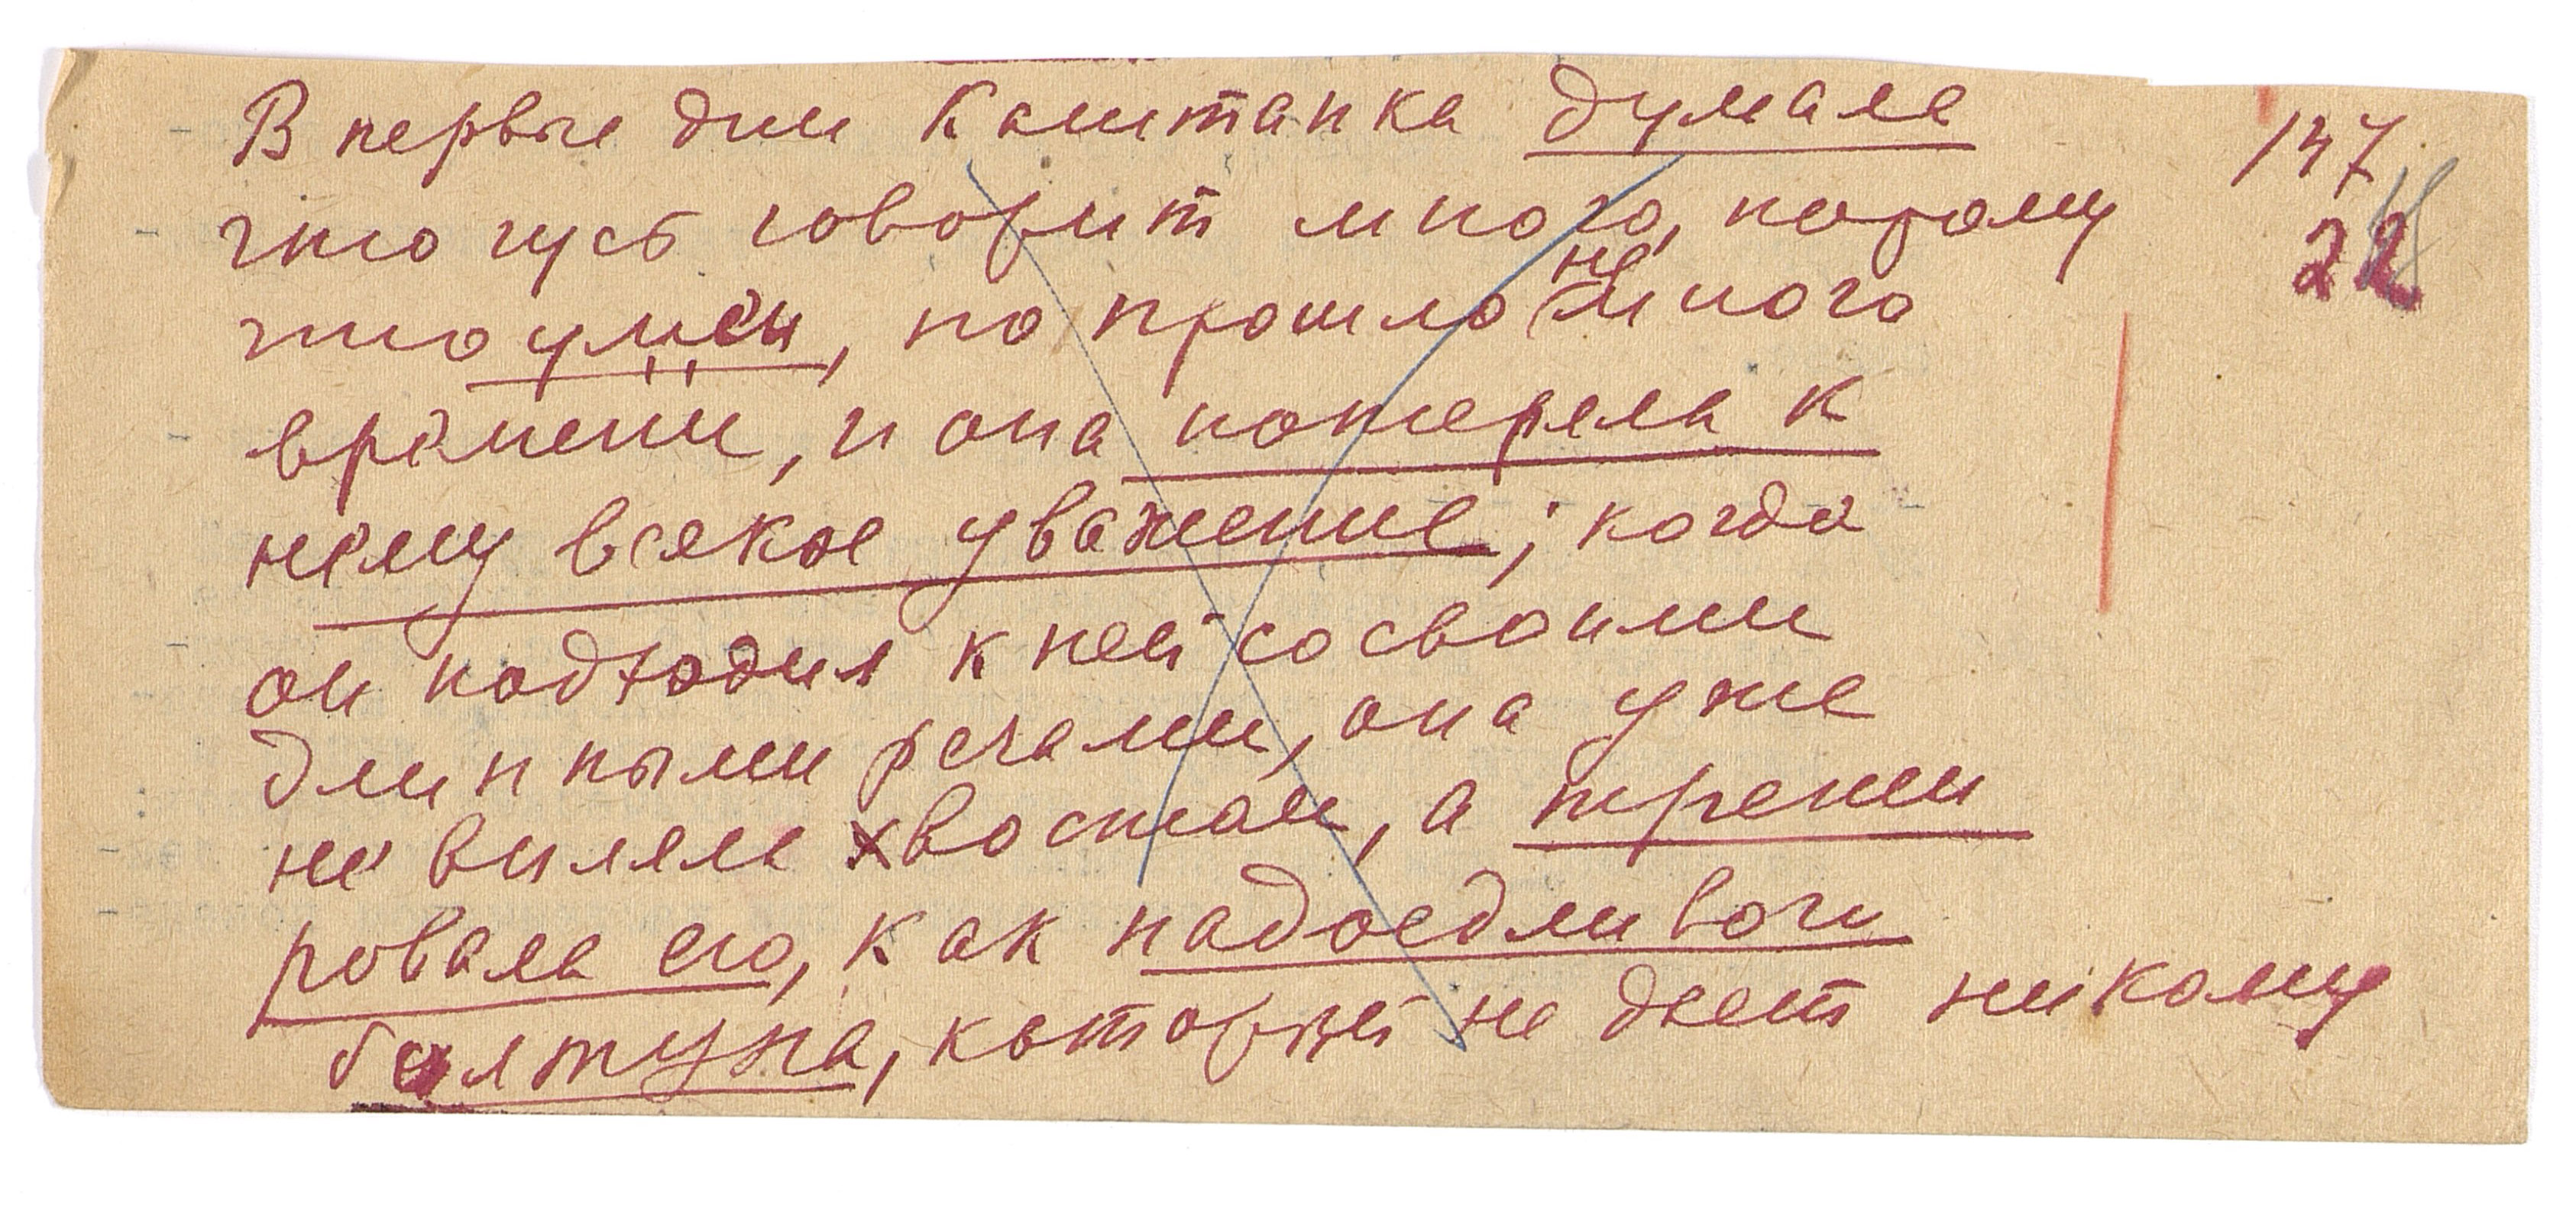 В первые дни Каштанка думала
что гусь говорит много, потому
что умен, но прошло не много
времени, и она потеряла к
нему всякое уважение; когда
он подходил к ней со своими
длинными речами, она уже
не виляла хвостом, а трети
ровала его, как надоедливого
болтуна, который не дает никому
147
22